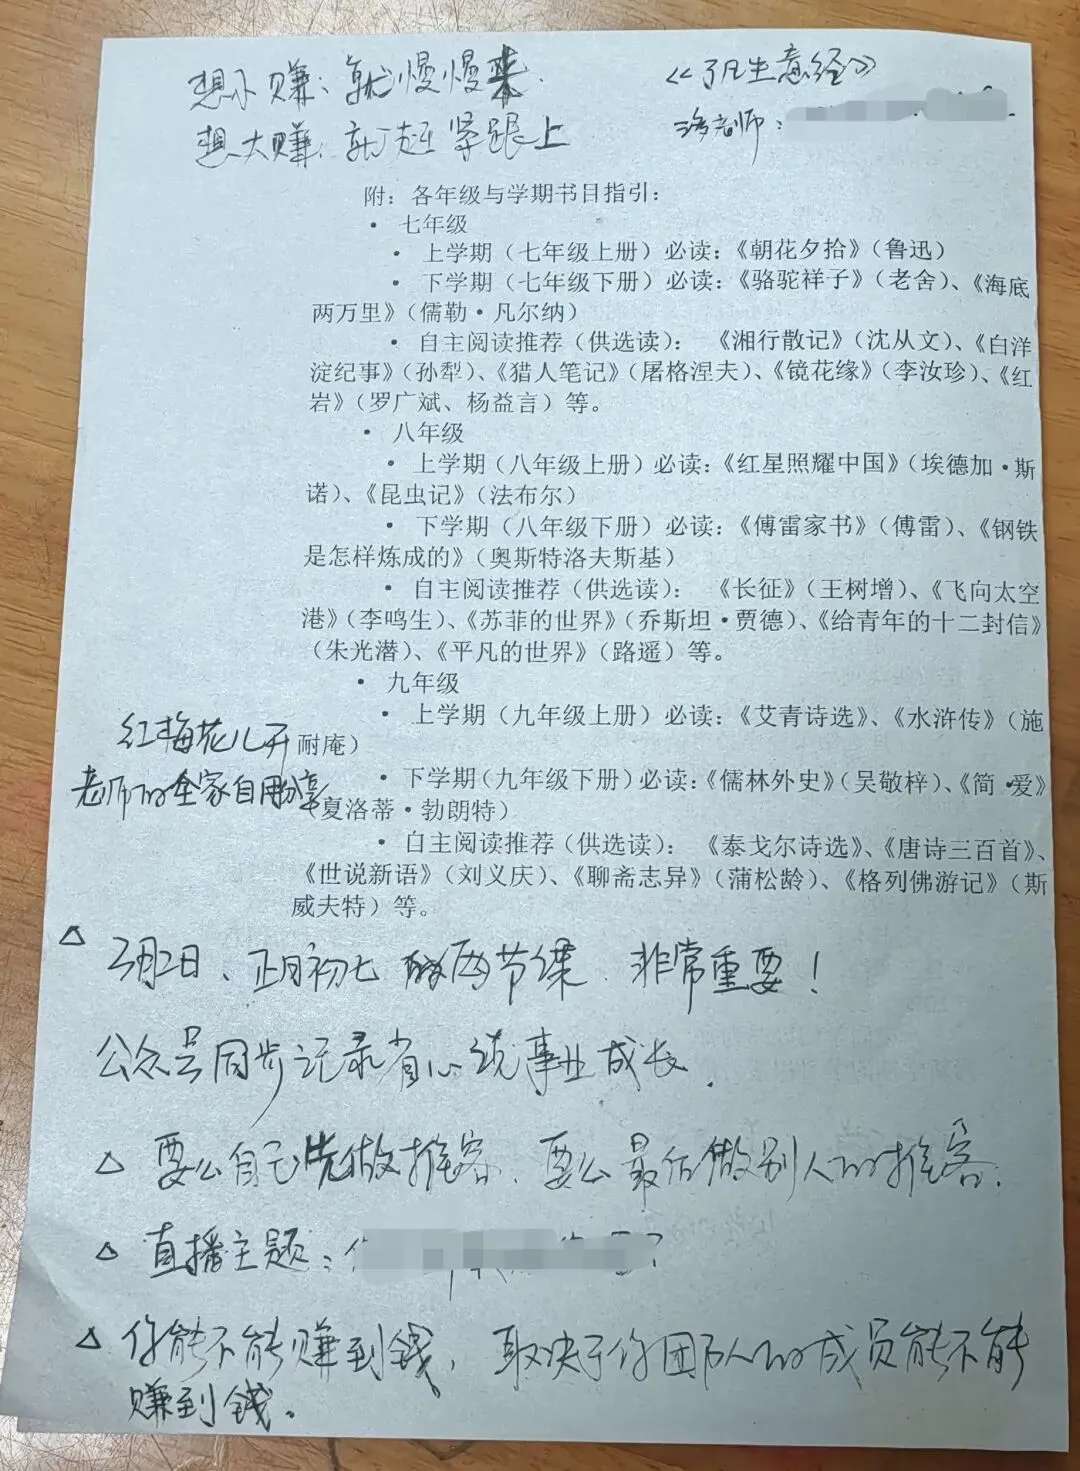 想小赚：就慢慢来.
《了凡生意经》
想大赚：就赶紧跟上
老师：
附：各年级与学期书目指引：
· 七年级
· 上学期（七年级上册）必读：《朝花夕拾》（鲁迅）
· 下学期（七年级下册）必读：《骆驼祥子》（老舍）、《海底
两万里》（儒勒·凡尔纳）
· 自主阅读推荐（供选读）： 《湘行散记》（沈从文）、《白洋
淀纪事》（孙犁）、《猎人笔记》（屠格涅夫）、《镜花缘》（李汝珍）、《红
岩》（罗广斌、杨益言）等。
· 八年级
· 上学期（八年级上册）必读：《红星照耀中国》（埃德加·斯
诺）、《昆虫记》（法布尔）
· 下学期（八年级下册）必读：《傅雷家书》（傅雷）、《钢铁
是怎样炼成的》（奥斯特洛夫斯基）
· 自主阅读推荐（供选读）： 《长征》（王树增）、《飞向太空
港》（李鸣生）、《苏菲的世界》（乔斯坦·贾德）、《给青年的十二封信》
（朱光潜）、《平凡的世界》（路遥）等。
· 九年级
· 上学期（九年级上册）必读：《艾青诗选》、《水浒传》（施
耐庵）
红梅花儿开
· 下学期（九年级下册）必读：《儒林外史》（吴敬梓）、《简·爱》
老师的全家自用分享
（夏洛蒂·勃朗特）
· 自主阅读推荐（供选读）： 《泰戈尔诗选》、《唐诗三百首》、
《世说新语》（刘义庆）、《聊斋志异》（蒲松龄）、《格列佛游记》（斯
威夫特）等。
△ 2月2日、正月初七 两节课. 非常重要！
公众号同步记录省心统事业成长.
△ 要么自己先做推客. 要么最后做别人的推客.
△ 直播主题：
△ 你能不能赚到钱，取决于你团队人的成员能不能
赚到钱。